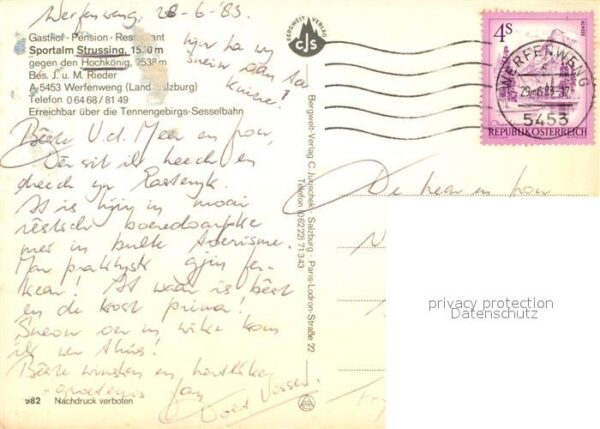 Werfenweng, 28-6-'83.
Gasthof - Pension - Restaurant
Sportalm Strussing, 1530 m
gegen den Hochkönig, 2538 m
Bes. J. u. M. Rieder
A-5453 Werfenweng (Land Salzburg)
Telefon 0 64 68 / 81 49
Erreichbar über die Tennengebirgs-Sesselbahn
Hjir ha wy
Sneów oan ta
BERGWELT VERLAG
CJS
Bêste U.d. Mear en
sit ik heech en
dreech yn Eastenryk.
It is hjir in moai
boeredoarpke
mei in bulte toerisme.
Mar praktysk gjin fer-
kear! It waar is bêst
en de kost prima!
oer in wike kom
ik wer thús!
Bêste winsken en hertlike
groetenis fan
982 Nachdruck verboten
Bergwelt-Verlag C. Jurischek, Salzburg - Paris-Lodron-Straße 22
Telefon (0 62 22) 7 13 43
4S
ALMSEE
REPUBLIK ÖSTERREICH
WERFENWENG
29.-6.83-12
5453
De hear en frou
privacy protection
Datenschutz